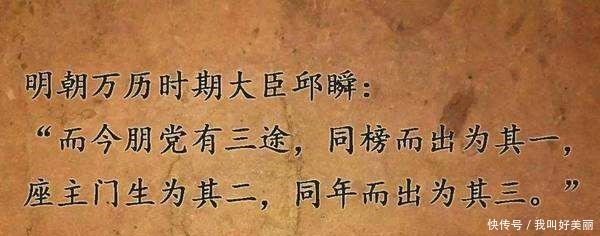 明朝万历时期大臣邱瞬：
“而今朋党有三途，同榜而出为其一，
座主门生为其二，同年而出为其三。”
快传号/我叫好美丽